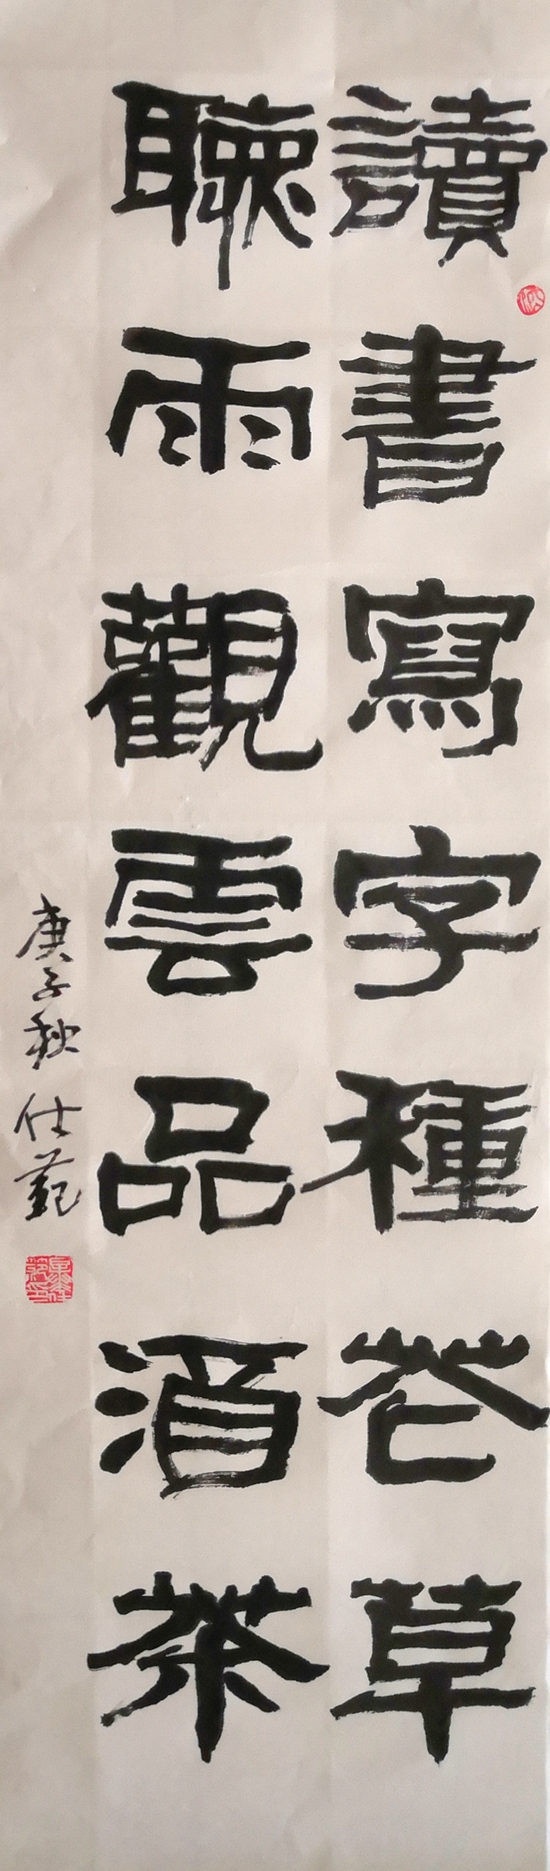 讀書寫字種花草
聽雨觀雲品酒茶
庚子秋 仕範